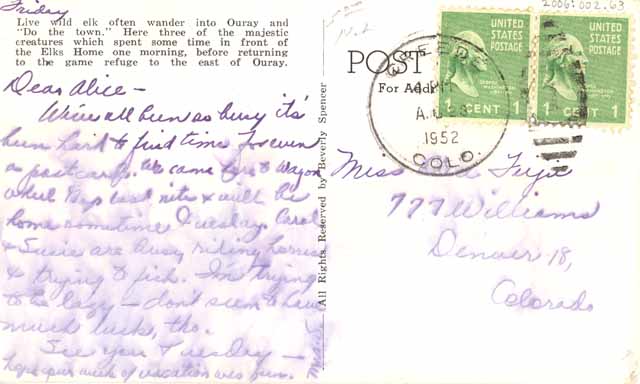 Friday
Live wild elk often wander into Ouray and
"Do the town." Here three of the majestic
creatures which spent some time in front of
the Elks Home one morning, before returning
to the game refuge to the east of Ouray.
Dear Alice —
We've all been so busy it's
been hard to find time for even
a postcard. We came here to Wagon
wheel Gap last nite & will be
home sometime Tuesday. Carol
& Susie are busy riding horses
& trying to fish. I'm trying
to be lazy — don't seem to have
much luck, tho.
See you Tuesday —
hope your week of vacation was fun.
(All Rights Reserved by Beverly Spencer
2006.002.63
POST
For Addr
CREEDE
PM
1952
COLO.
UNITED
STATES
POSTAGE
1 CENT 1
UNITED
STATES
POSTAGE
1 CENT 1
Miss
777 Williams
Denver 18,
Colorado